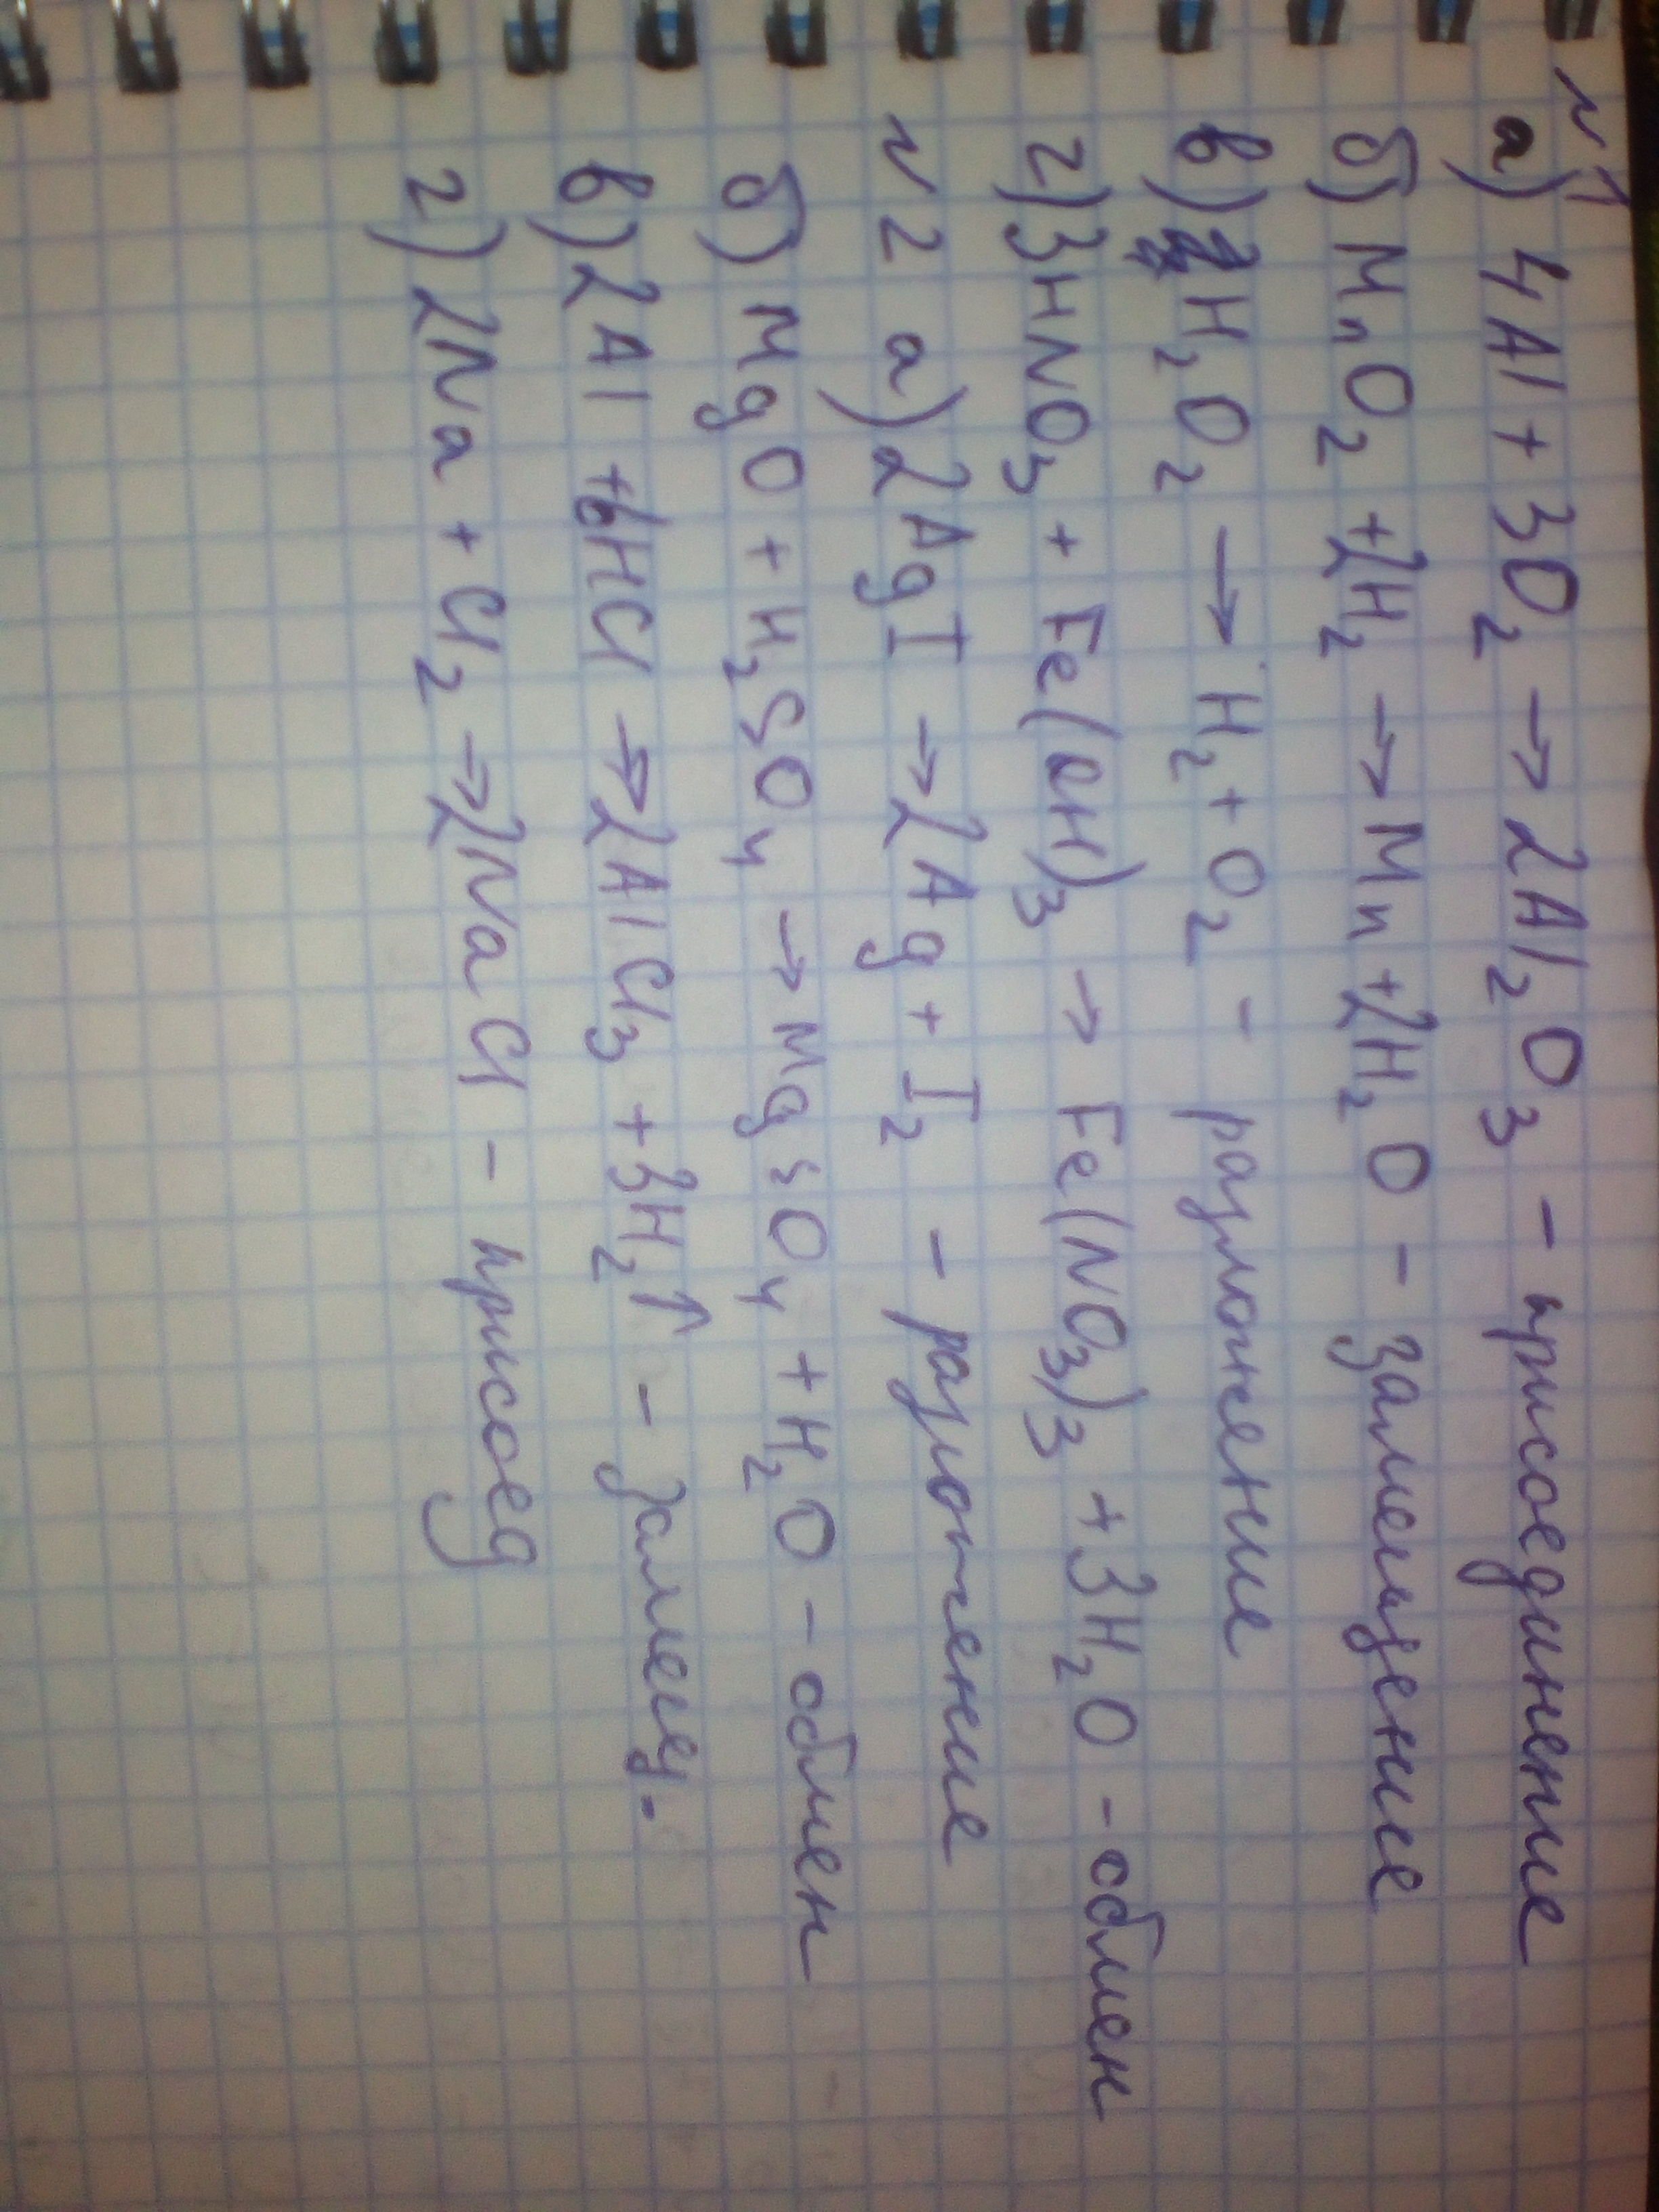 №1
а) 4Al + 3O₂ → 2Al₂O₃ - присоединение
б) MnO₂ + 2H₂ → Mn + 2H₂O - замещение
в) H₂O₂ → H₂ + O₂ - разложение
г) 3HNO₃ + Fe(OH)₃ → Fe(NO₃)₃ + 3H₂O - обмен
№2 а) 2AgI → 2Ag + I₂ - разложение
б) MgO + H₂SO₄ → MgSO₄ + H₂O - обмен
в) 2Al + 6HCl → 2AlCl₃ + 3H₂↑ - замещ.
г) 2Na + Cl₂ → 2NaCl - присоед